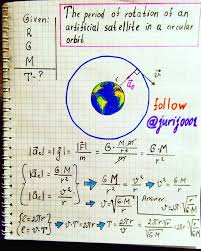 Given:
The period of rotation of an
artificial satellite in a circular
orbit
R
G
M
T-?
r
a⃗c
v⃗
follow
@jurij0001
|a⃗c| = |g⃗| = |F⃗|/m = G·M·m/r²·m = G·M/r²
{|a⃗c| = G·M/r² → G·M/r² = v²/r → G·M/r = v²
|a⃗c| = v²/r → v = √(G·M/r)
Answer
{ℓ = 2πr
ℓ = v·T → v·T = 2πr → T = 2πr/v = 2πr√r/√(G·M)